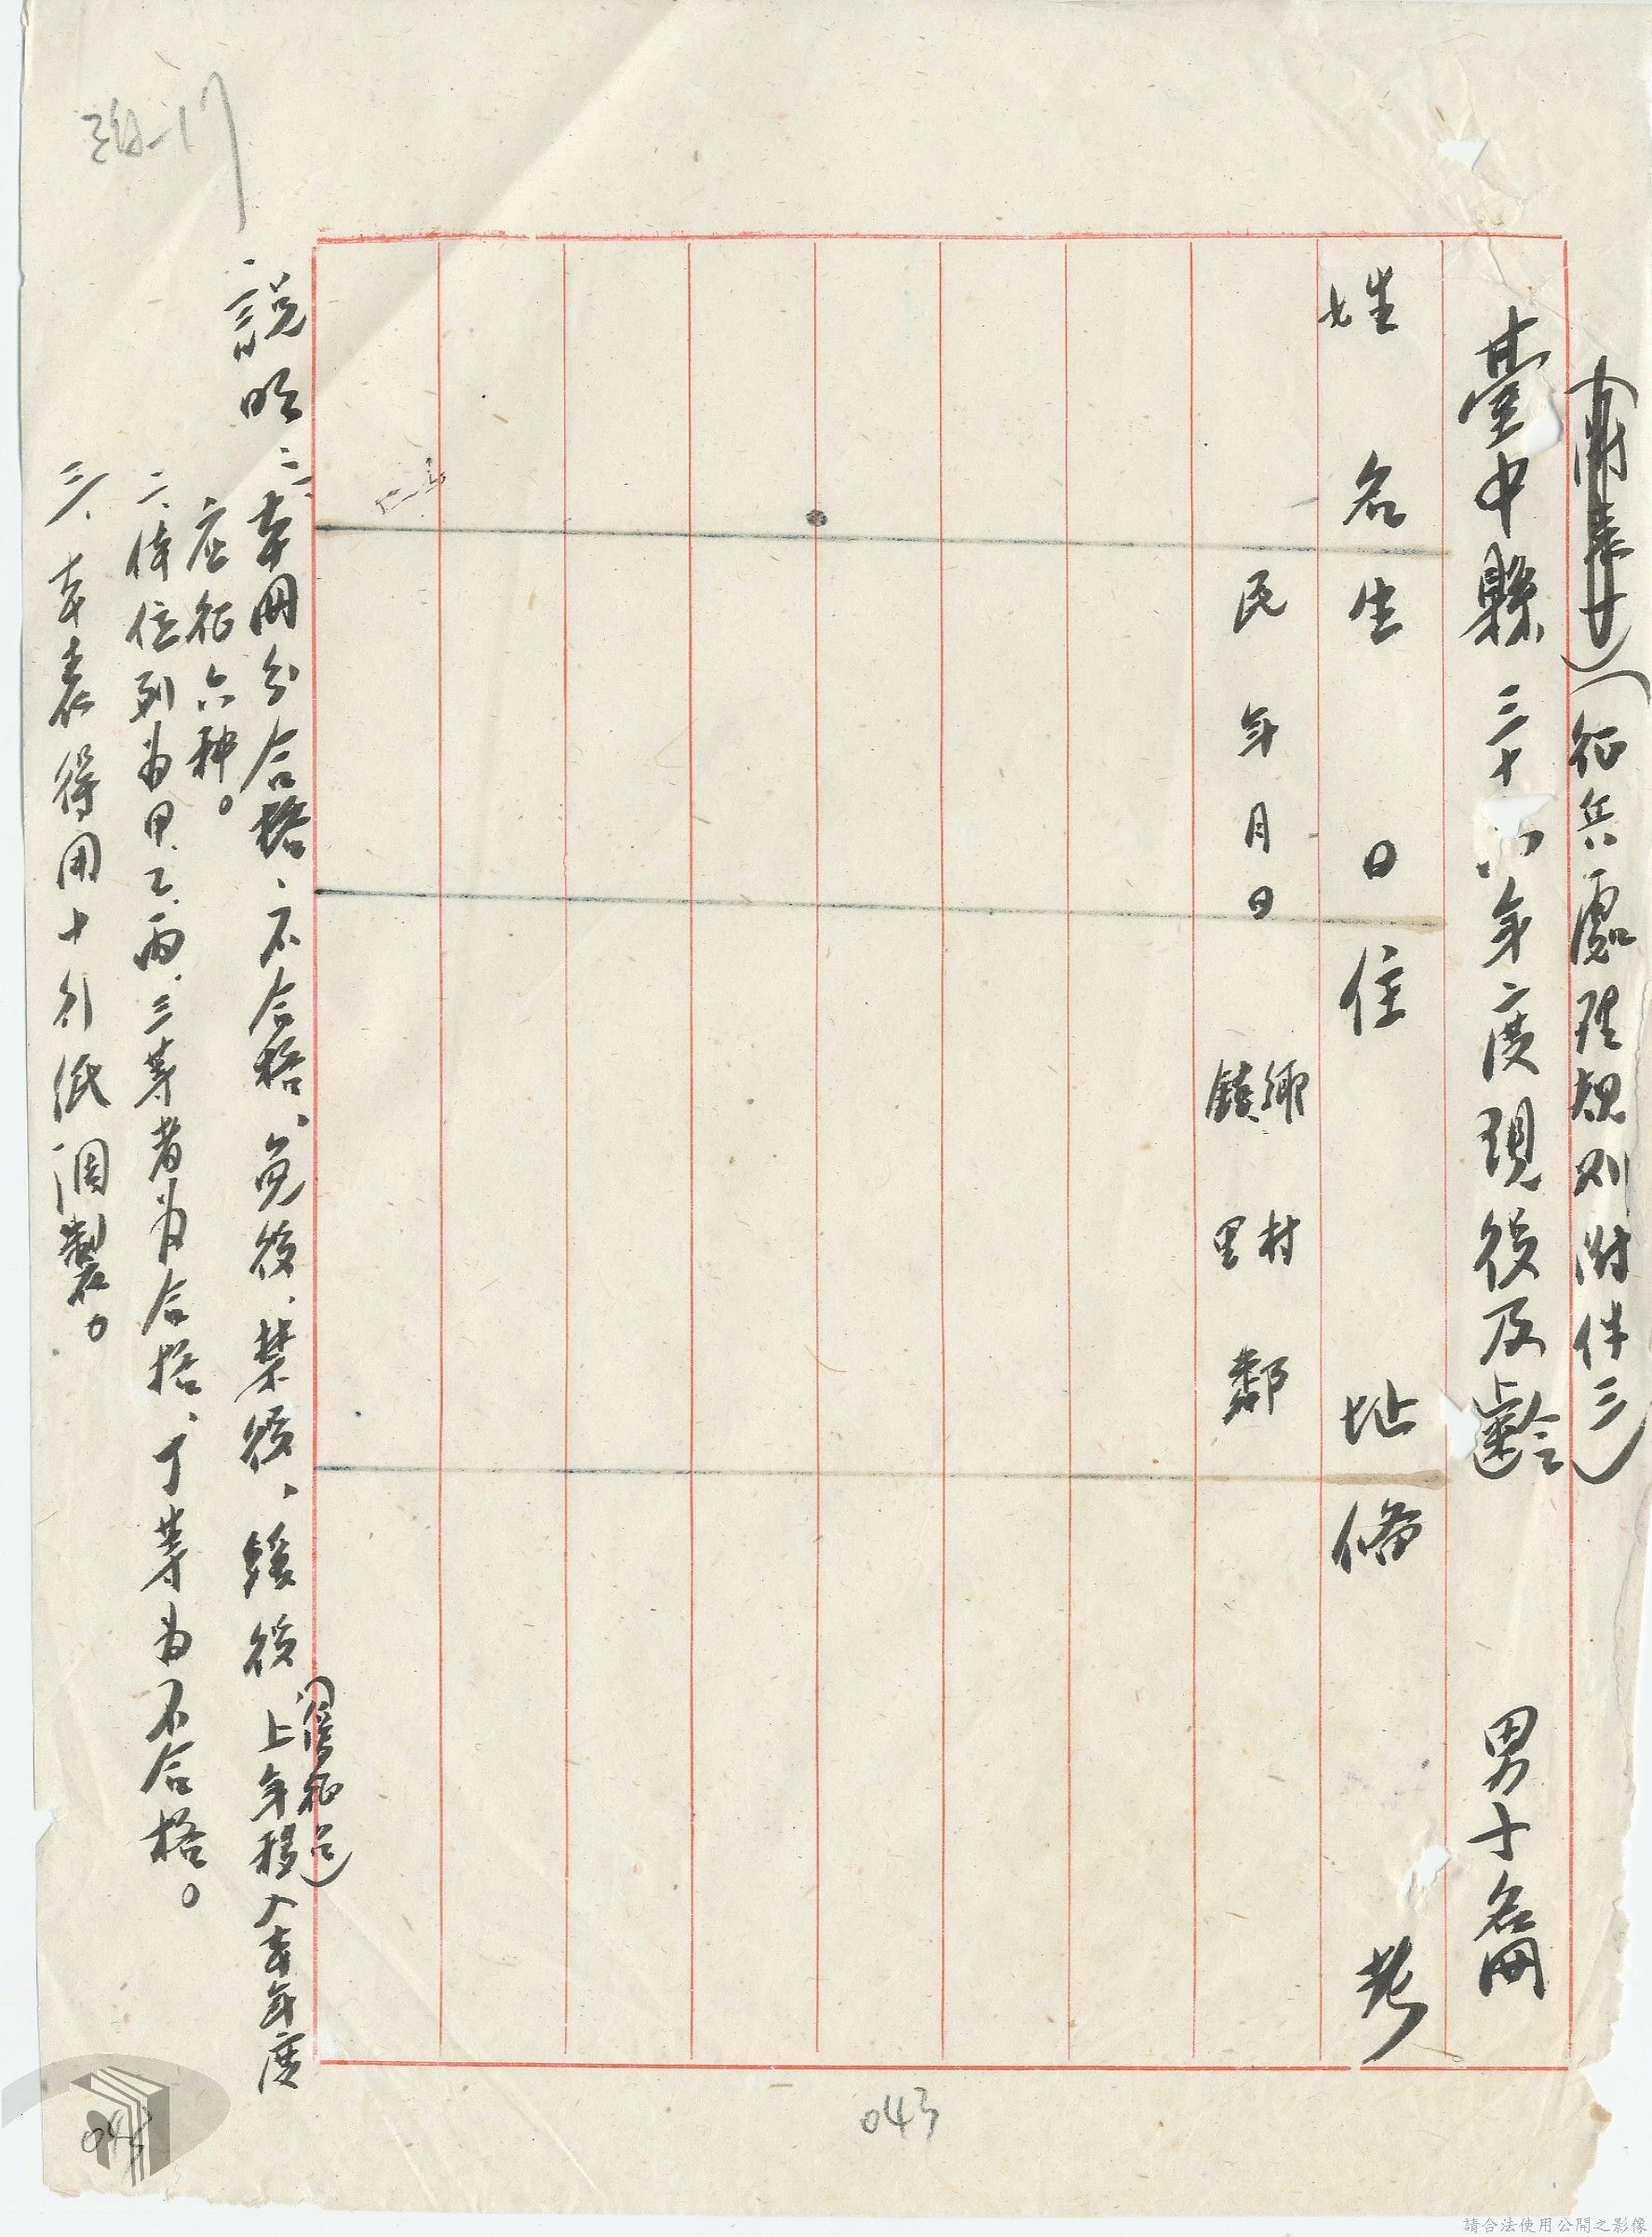 (征兵處理規則附件三)
臺中縣三十六年度現役及齡男子名冊
姓名 生日 住址 備考
民 年 月 日 鄉鎮 村里 鄰
說明:一、本冊分合格、不合格、免役、禁役、緩役(緩征)上年移入本年度
應征六种。
二、体位列為甲、乙、丙、三等者為合格、丁等為不合格。
三、本表得用十行紙調製。
043
045
請合法使用公開之影像